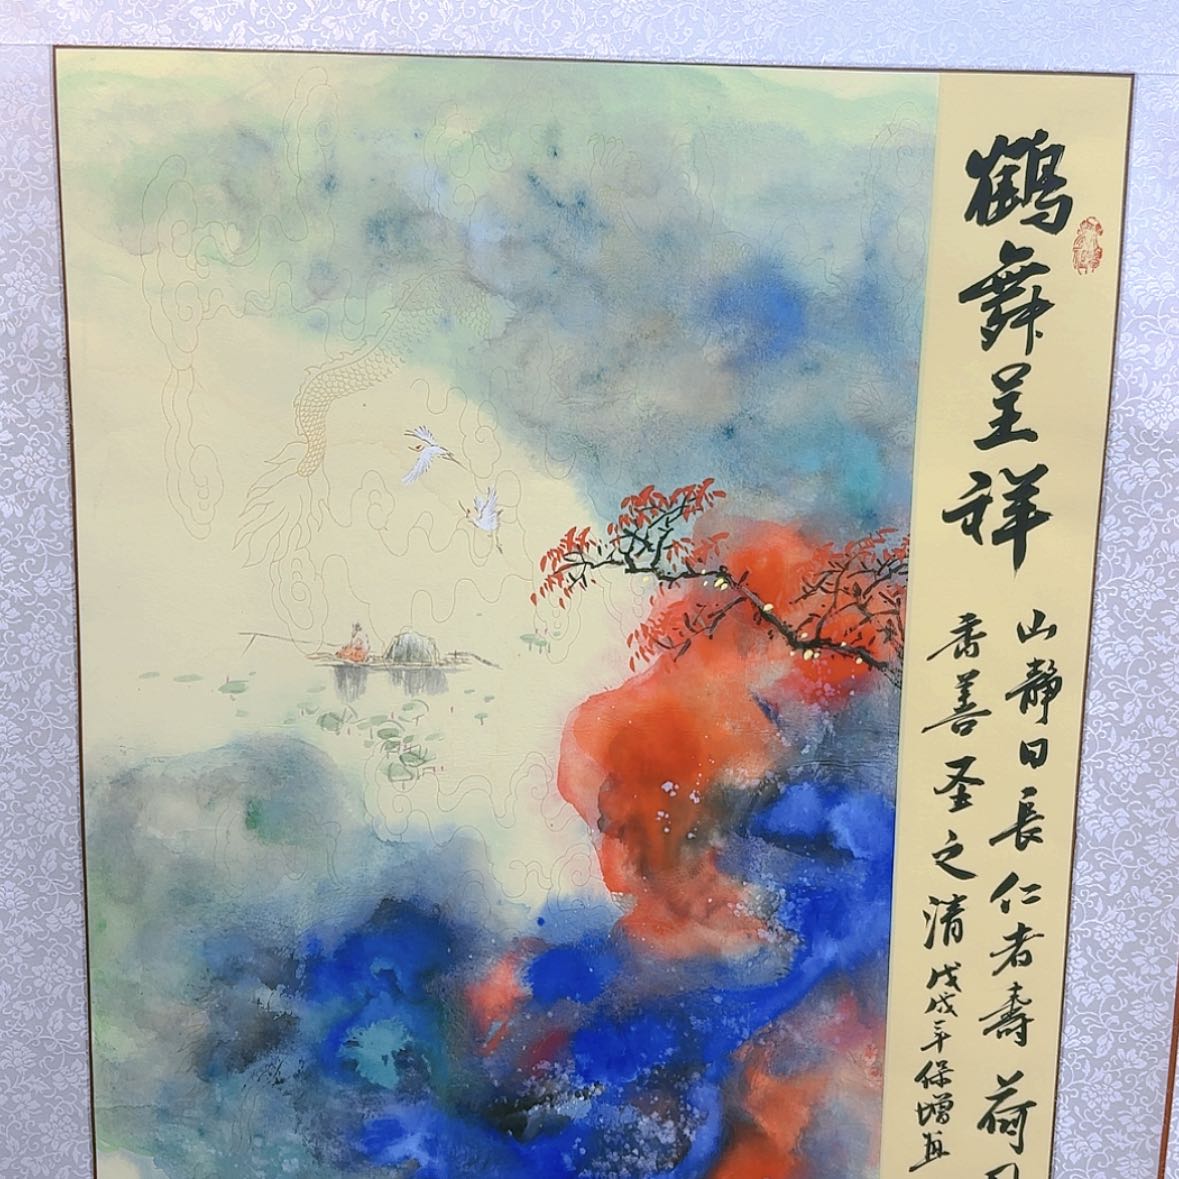 鶴舞呈祥
山静日長仁者壽荷
香善圣之清
戊戌年保增画